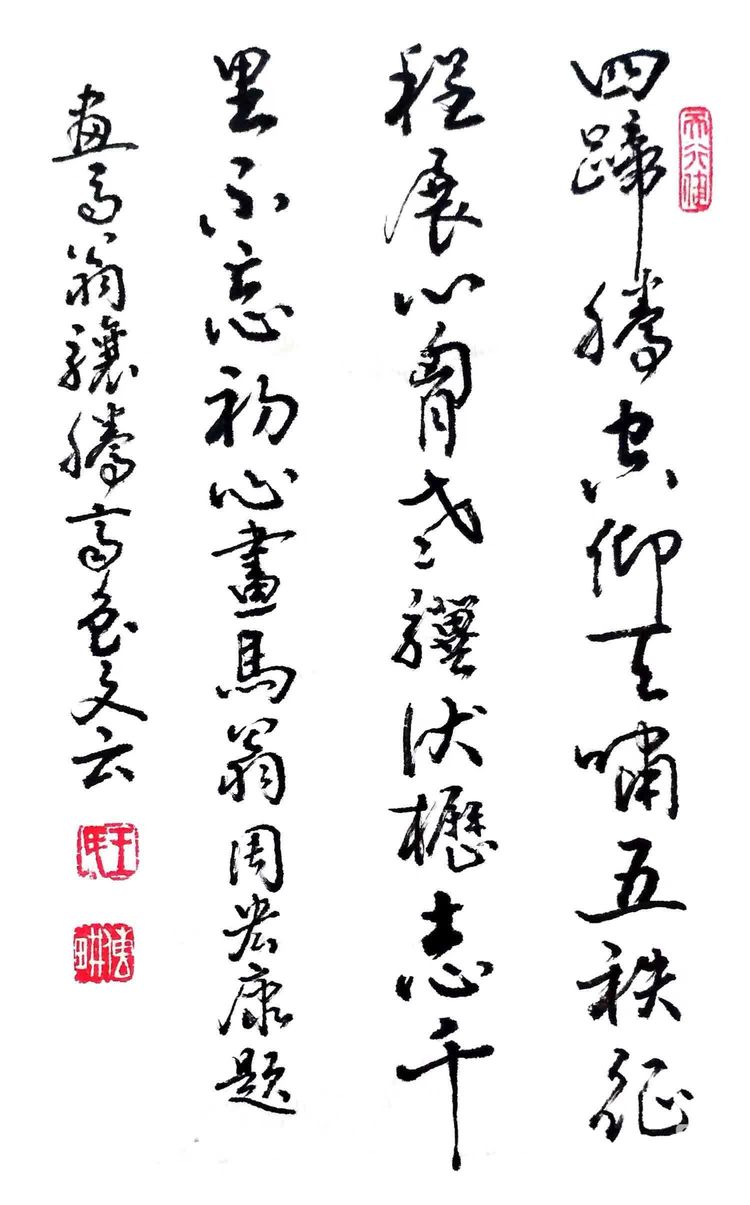 天行健
四蹄騰空仰天嘯五秩征
程展心胷老驥伏櫪志千
里不忘初心畫馬翁周宏康題
畫馬翁驤騰高文云